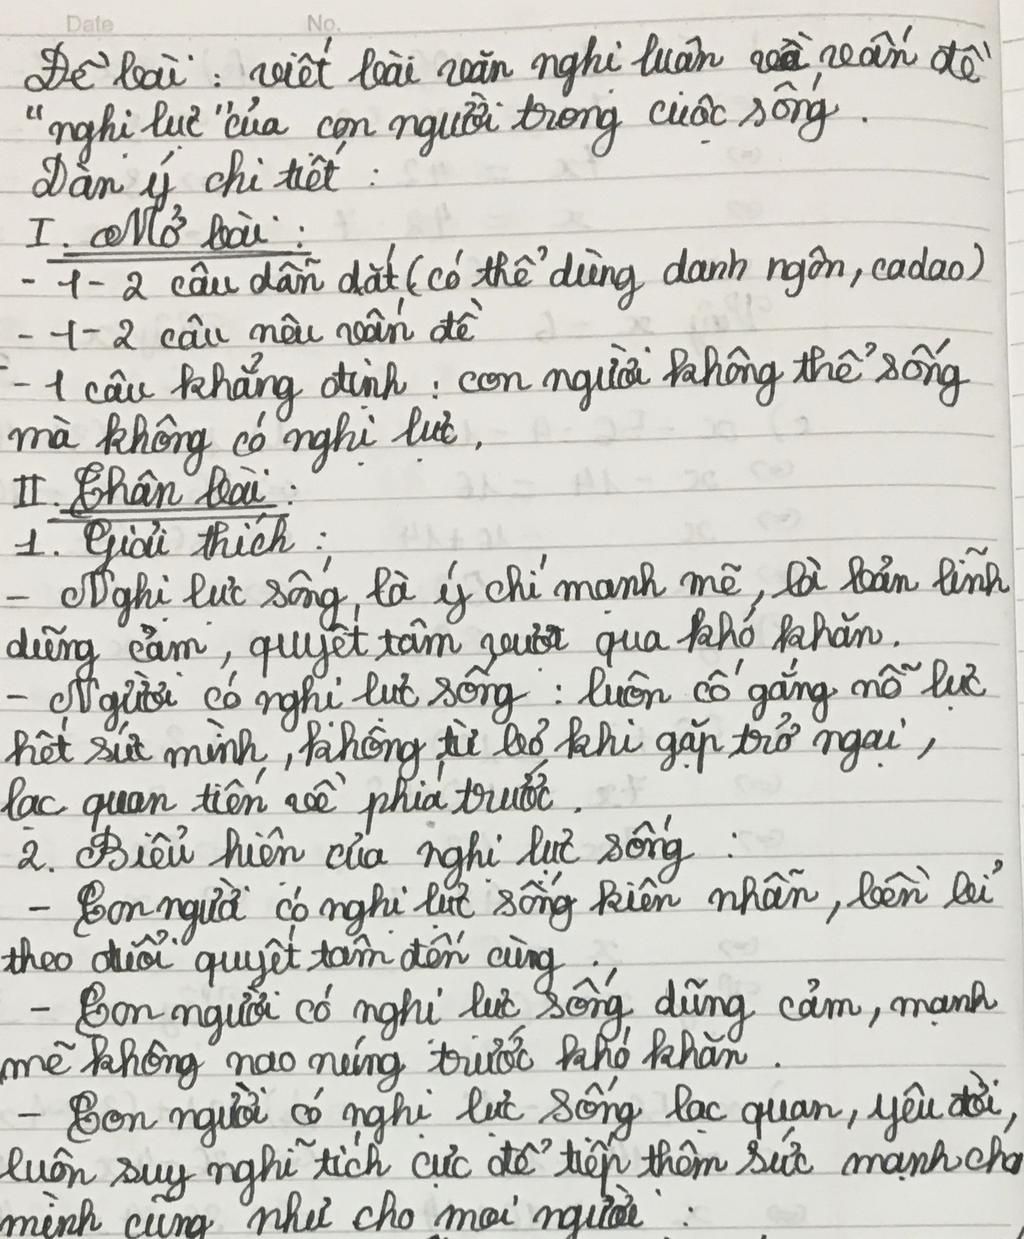 Date No.
Đề bài : viết bài văn nghị luận về vấn đề
"nghị lực" của con người trong cuộc sống .
Dàn ý chi tiết :
I . Mở bài :
- 1 - 2 câu dẫn dắt ( có thể dùng danh ngôn, ca dao )
- 1 - 2 câu nêu vấn đề
- 1 câu khẳng định : con người không thể sống
mà không có nghị lực .
II . Thân bài :
1 . Giải thích :
- Nghị lực sống, là ý chí mạnh mẽ, là bản lĩnh
dũng cảm, quyết tâm vượt qua khó khăn .
- Người có nghị lực sống : luôn cố gắng nỗ lực
hết sức mình, không từ bỏ khi gặp trở ngại,
lạc quan tiến về phía trước .
2 . Biểu hiện của nghị lực sống :
- Con người có nghị lực sống kiên nhẫn, bền bỉ
theo đuổi quyết tâm đến cùng .
- Con người có nghị lực sống dũng cảm, mạnh
mẽ không nao núng trước khó khăn .
- Con người có nghị lực sống lạc quan, yêu đời,
luôn suy nghĩ tích cực để tiếp thêm sức mạnh cho
mình cũng như cho mọi người .